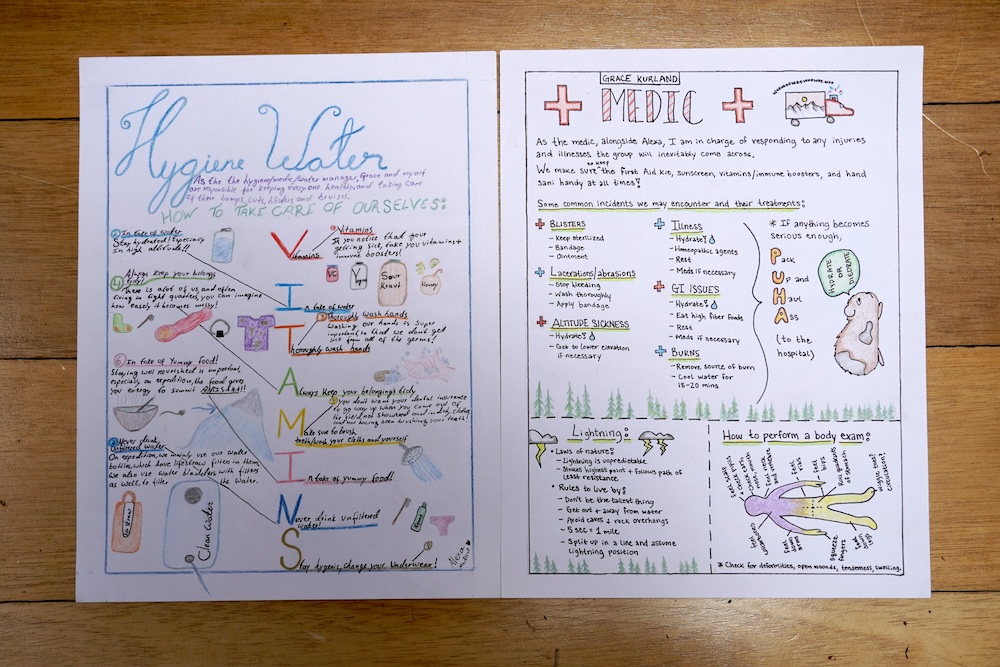 Hygiene Water
As the the hygiene/medic/water manager, Grace and myself
are responsible for keeping everyone healthy, and taking care
of them bumps, cuts, blisters and bruises.
HOW TO TAKE CARE OF OURSELVES:
② In take of water
Stay hydrated! Especially
in high altitude!!
④ Always keep your belongs
tidy!
There is alot of us, and often
living in tight quarters, you can imagine
how easily it becomes messy!
⑥ In take of Yummy food!
Staying well nourished is important,
especially on expedition, the food gives
you energy to summit
Never drink
unfiltered water
On expedition, we mainly use our water
bottles, which have lifestraw filters in them,
we also use water bladders with filters
as well, to filter the water.
Clean Water
Vitamins
① Vitamins
If you notice that your
getting sick, take you vitamins +
immune boosters!
VC
Sour
Kraut
Honey
In take of water
③ Thoroughly wash hands
Washing our hands is super
important, so that we don't get
sick from all of the germs!
Thoroughly wash hands
Always keep your belongings tidy
Make sure to brush
teeth/wash your cloths and yourself
In take of yummy food!
Never drink unfiltered
water!
Stay hygenic, change your underwear!
Alexa
GRACE KURLAND
MEDIC
As the medic, alongside Alexa, I am in charge of responding to any injuries
and illnesses the group will inevitably come across.
We make sure to keep the First Aid Kit, sunscreen, vitamins/immune boosters, and hand
sani handy at all times!
Some common incidents we may encounter and their treatments:
BLISTERS
- Keep sterilized
- Bandage
- Ointment
Lacerations/abrasions
- Stop bleeding
- Wash thoroughly
- Apply bandage
ALTITUDE SICKNESS
- Hydrate!
- Get to lower elevation
if necessary
Illness
- Hydrate!
- Homeopathic agents
- Rest
- Meds if necessary
GI ISSUES
- Hydrate!
- Eat high fiber foods
- Rest
- Meds if necessary
BURNS
- Remove source of burn
- Cool water for
15-20 mins
* If anything becomes
serious enough,
Pack
Up and
Haul
Ass
(to the
hospital)
HYDRATE
OR
DIEDRATE
Lightning:
• Laws of nature:
- Lightning is unpredictable
- Strikes highest point + follows path of
least resistance
• Rules to live by:
- Don't be the tallest thing
- Get out + away from water
- Avoid caves + rock overhangs
- 5 sec = 1 mile
- Split up in a line and assume
lightning position
How to perform a body exam:
Feel
ribs
Feel
hips
Feel down
arms
Squeeze
fingers
Feel down
legs
Wiggle toes?
Circulation?
* Check for deformities, open wounds, tenderness, swelling.